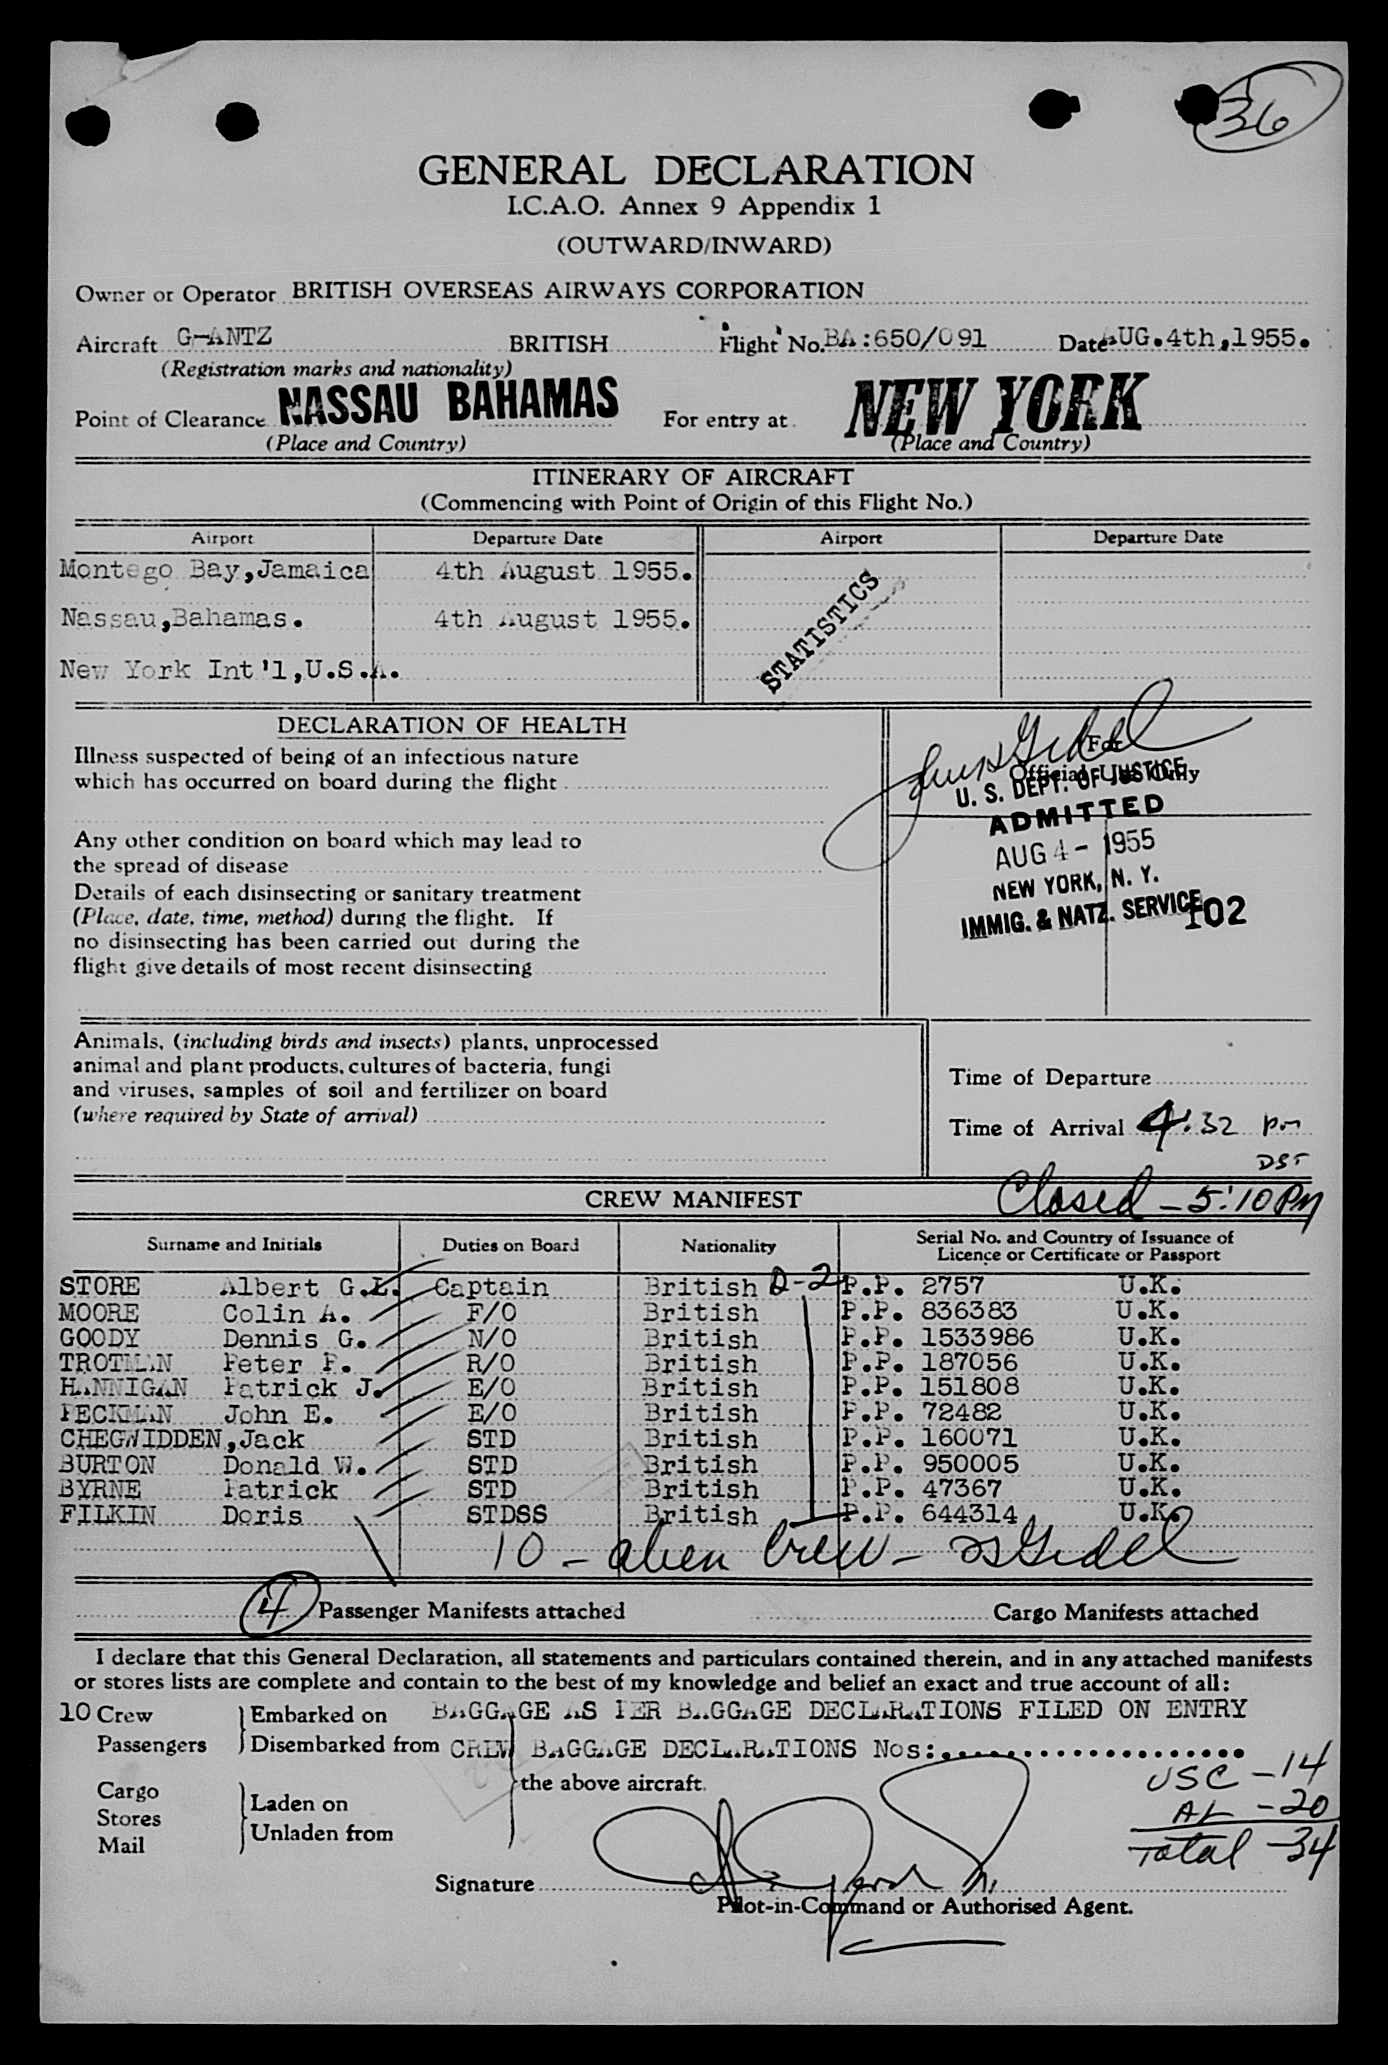 36
GENERAL DECLARATION
I.C.A.O. Annex 9 Appendix 1
(OUTWARD/INWARD)
Owner or Operator BRITISH OVERSEAS AIRWAYS CORPORATION
Aircraft G-ANTZ BRITISH Flight No. BA:650/091 Date AUG.4th,1955.
(Registration marks and nationality)
Point of Clearance NASSAU BAHAMAS For entry at NEW YORK
(Place and Country) (Place and Country)
ITINERARY OF AIRCRAFT
(Commencing with Point of Origin of this Flight No.)
Airport Departure Date Airport Departure Date
Montego Bay,Jamaica 4th August 1955.
Nassau,Bahamas. 4th August 1955.
New York Int'l,U.S.A.
STATISTICS
DECLARATION OF HEALTH
Illness suspected of being of an infectious nature
which has occurred on board during the flight
Any other condition on board which may lead to
the spread of disease
Details of each disinsecting or sanitary treatment
(Place, date, time, method) during the flight. If
no disinsecting has been carried out during the
flight give details of most recent disinsecting
For
Official Use Only
U. S. DEPT. OF JUSTICE
ADMITTED
AUG 4 - 1955
NEW YORK, N. Y.
IMMIG. & NATZ. SERVICE 102
Animals, (including birds and insects) plants, unprocessed
animal and plant products, cultures of bacteria, fungi
and viruses, samples of soil and fertilizer on board
(where required by State of arrival)
Time of Departure
Time of Arrival 4:32 pm
DST
Closed - 5:10 PM
CREW MANIFEST
Surname and Initials Duties on Board Nationality Serial No. and Country of Issuance of
Licence or Certificate or Passport
STORE Albert G.L. Captain British D-2 P.P. 2757 U.K.
MOORE Colin A. F/O British P.P. 836383 U.K.
GOODY Dennis G. N/O British P.P. 1533986 U.K.
TROTMAN Peter F. R/O British P.P. 187056 U.K.
HANNIGAN Patrick J. E/O British P.P. 151808 U.K.
PECKMAN John E. E/O British P.P. 72482 U.K.
CHEGWIDDEN,Jack STD British P.P. 160071 U.K.
BURTON Donald W. STD British P.P. 950005 U.K.
BYRNE Patrick STD British P.P. 47367 U.K.
FILKIN Doris STDSS British P.P. 644314 U.K.
10 - alien Crew -
4 Passenger Manifests attached Cargo Manifests attached
I declare that this General Declaration, all statements and particulars contained therein, and in any attached manifests
or stores lists are complete and contain to the best of my knowledge and belief an exact and true account of all:
10 Crew Embarked on BAGGAGE AS PER BAGGAGE DECLARATIONS FILED ON ENTRY
Passengers Disembarked from CREW BAGGAGE DECLARATIONS Nos:....................
Cargo the above aircraft.
Stores Laden on
Mail Unladen from
USC - 14
AL - 20
Total - 34
Signature
Pilot-in-Command or Authorised Agent.